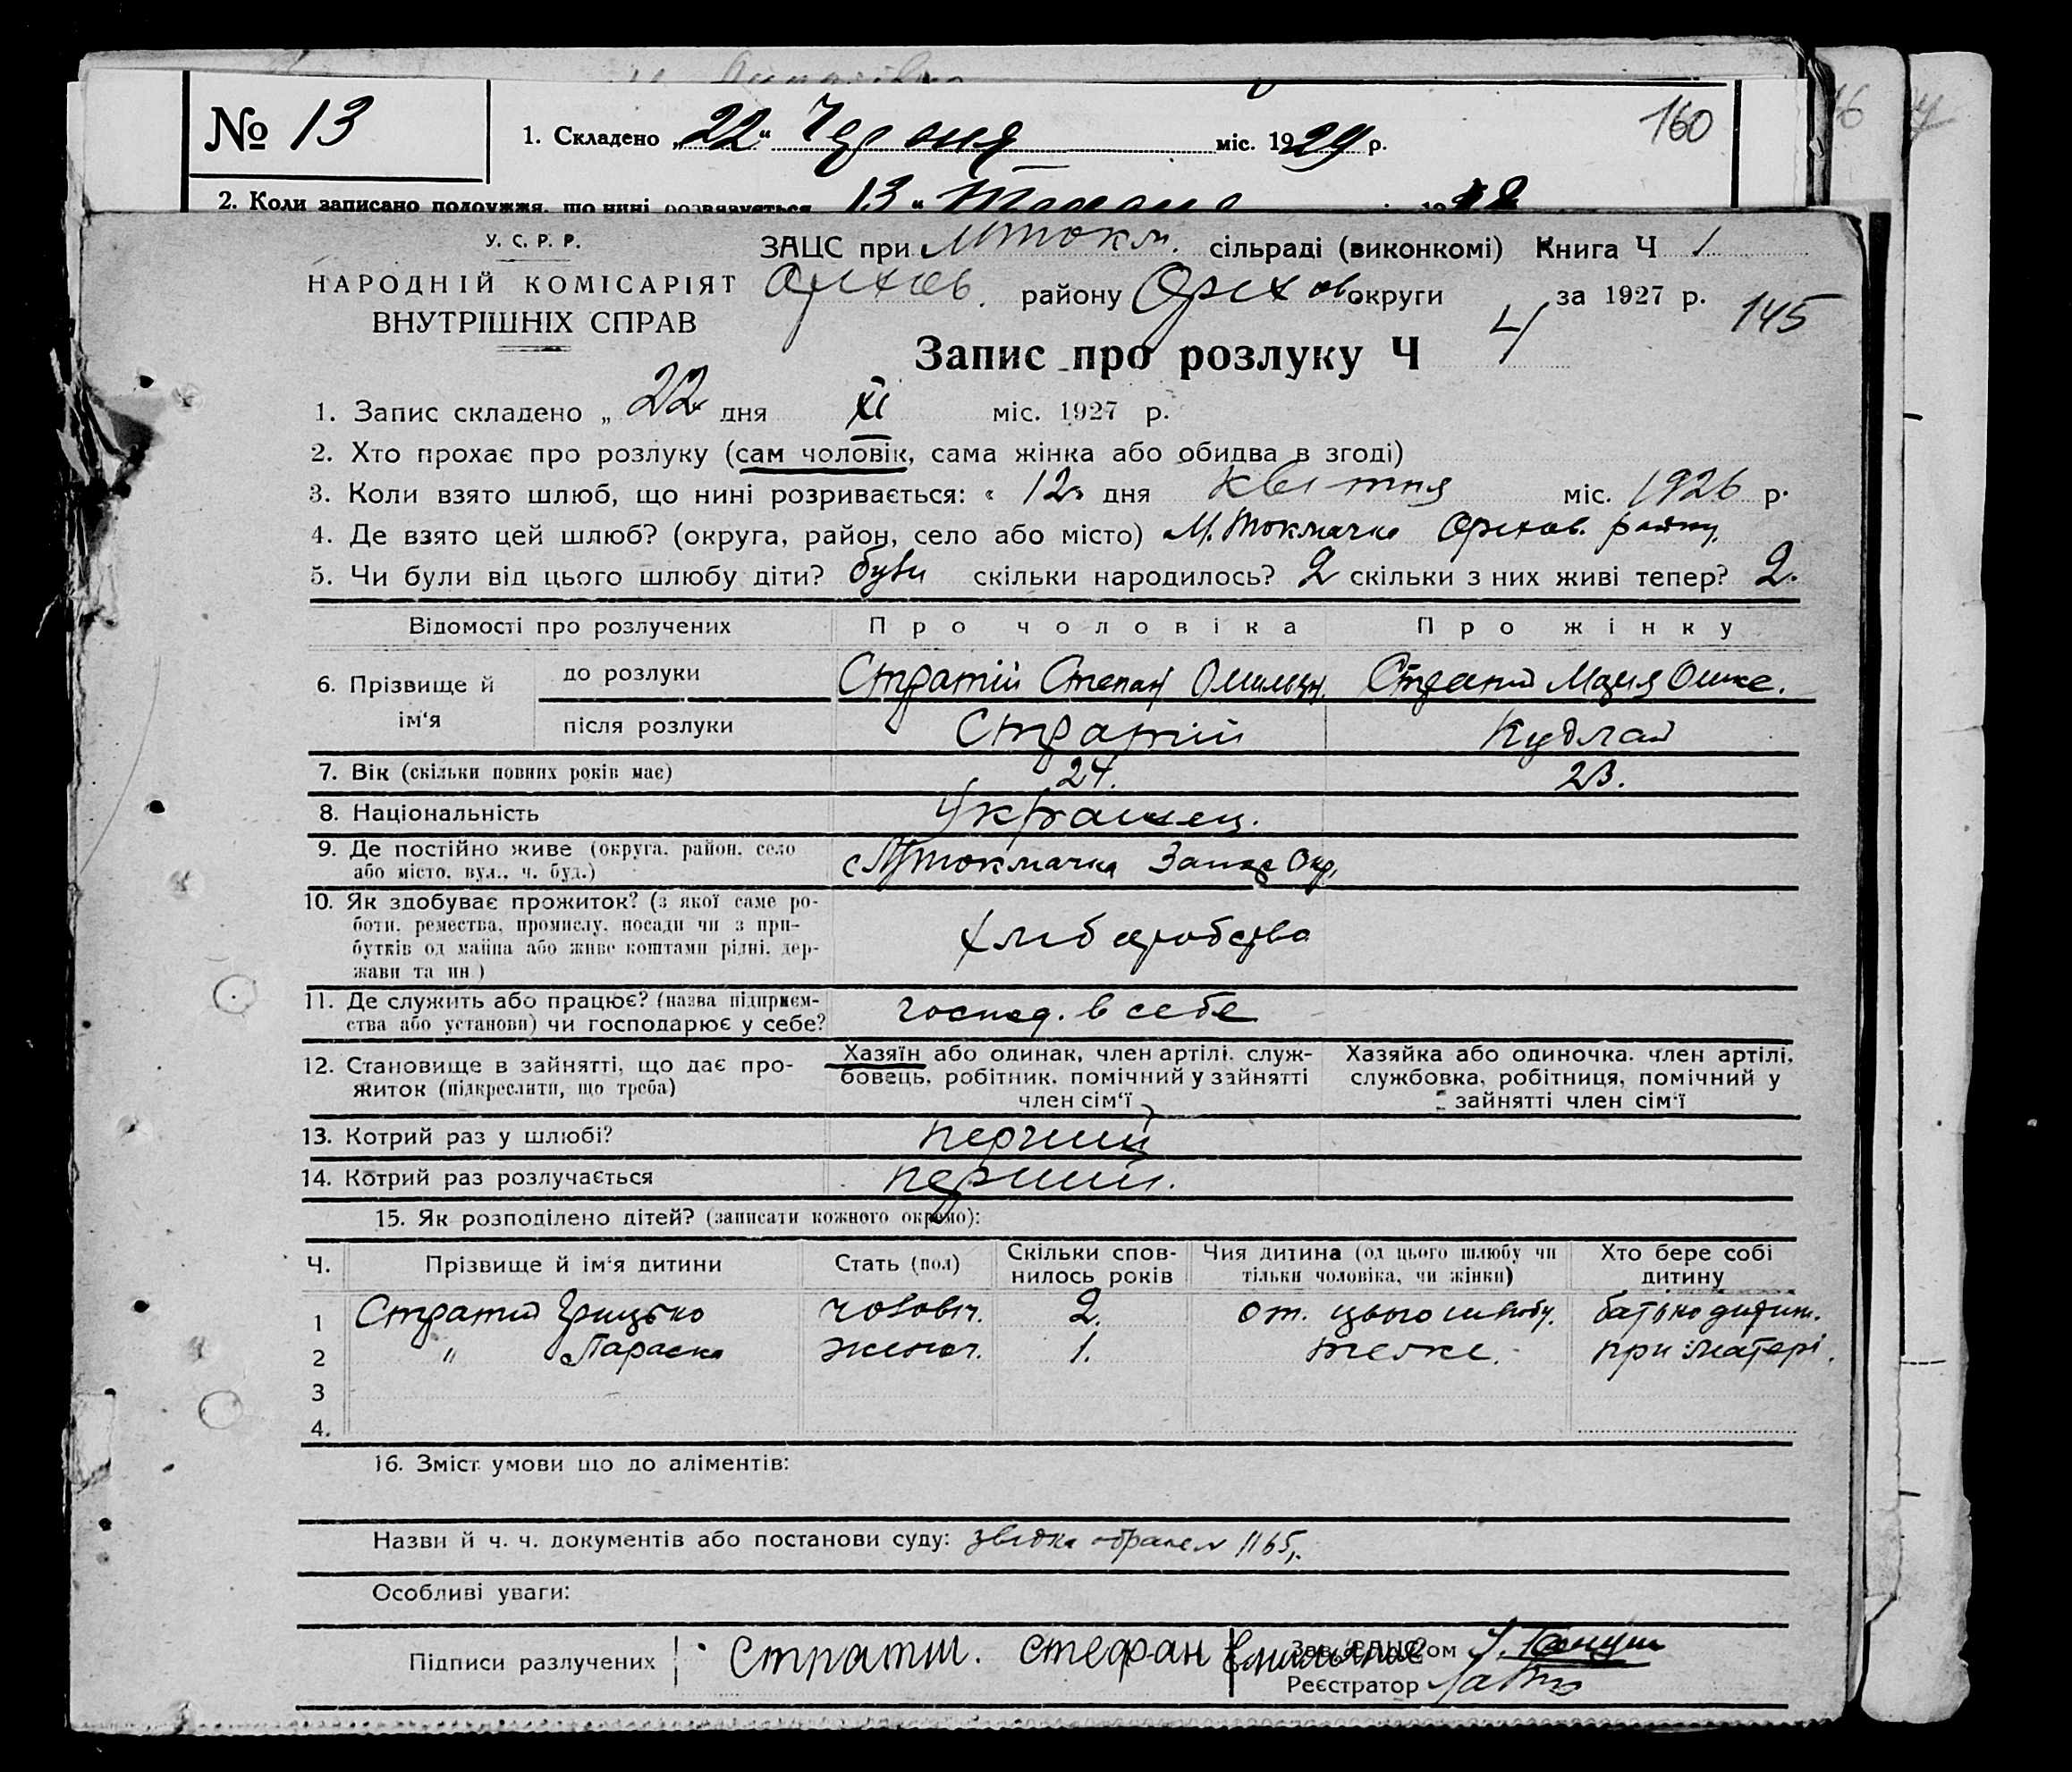 № 13
1. Складено „22“ Червня міс. 1929 р.
160
2. Коли записано подружжя, що нині розвязується 13 "
У. С. Р. Р.
НАРОДНІЙ КОМІСАРІЯТ
ВНУТРІШНІХ СПРАВ
ЗАЦС при Мтокм. сільраді (виконкомі) Книга Ч 1
Оріхов. району Оріхов округи за 1927 р.
145
Запис про розлуку Ч 4
1. Запис складено „ 22 дня XI міс. 1927 р.
2. Хто прохає про розлуку (сам чоловік, сама жінка або обидва в згоді)
3. Коли взято шлюб, що нині розривається: « 12» дня квітня міс. 1926 р.
4. Де взято цей шлюб? (округа, район, село або місто) М. Токмачка Оріхов. району
5. Чи були від цього шлюбу діти? були скільки народилось? 2 скільки з них живі тепер? 2.
Відомості про розлучених Про чоловіка Про жінку
6. Прізвище й ім‘я
до розлуки Стратій Степан Омельян. Стратій Мария
після розлуки Стратій Кудлай
7. Вік (скільки повних років має) 24. 23.
8. Національність Украинец.
9. Де постійно живе (округа, район, село
або місто, вул., ч. буд.) с Мтокмачка Запор Окр.
10. Як здобуває прожиток? (з якої саме ро-
боти, ремества, промислу, посади чи з при-
бутків од майна або живе коштами рідні, дер-
жави та ин.) хліборобство
11. Де служить або працює? (назва підприєм-
ства або установи) чи господарює у себе? господ. в себе
12. Становище в зайнятті, що дає про-
житок (підкреслити, що треба)
Хазяїн або одинак, член артілі, служ-
бовець, робітник, помічний у зайнятті
член сім‘ї
Хазяйка або одиночка, член артілі,
службовка, робітниця, помічний у
зайнятті член сім‘ї
13. Котрий раз у шлюбі? перший
14. Котрий раз розлучається перший.
15. Як розподілено дітей? (записати кожного окремо):
Ч. Прізвище й ім‘я дитини Стать (пол) Скільки спов-
нилось років Чия дитина (од цього шлюбу чи
тільки чоловіка, чи жінки) Хто бере собі
дитину
1 Стратій Грицько чоловіч. 2. от. цього шлюбу. батько дитин.
2 " Параска жіноч. 1. теже. при матері.
3
4.
16. Зміст умови що до аліментів:
Назви й ч. ч. документів або постанови суду: звідка 1165,
Особливі уваги:
Підписи разлучених Стратій. Стефан Зав. ЗАЦС‘ом
Реєстратор